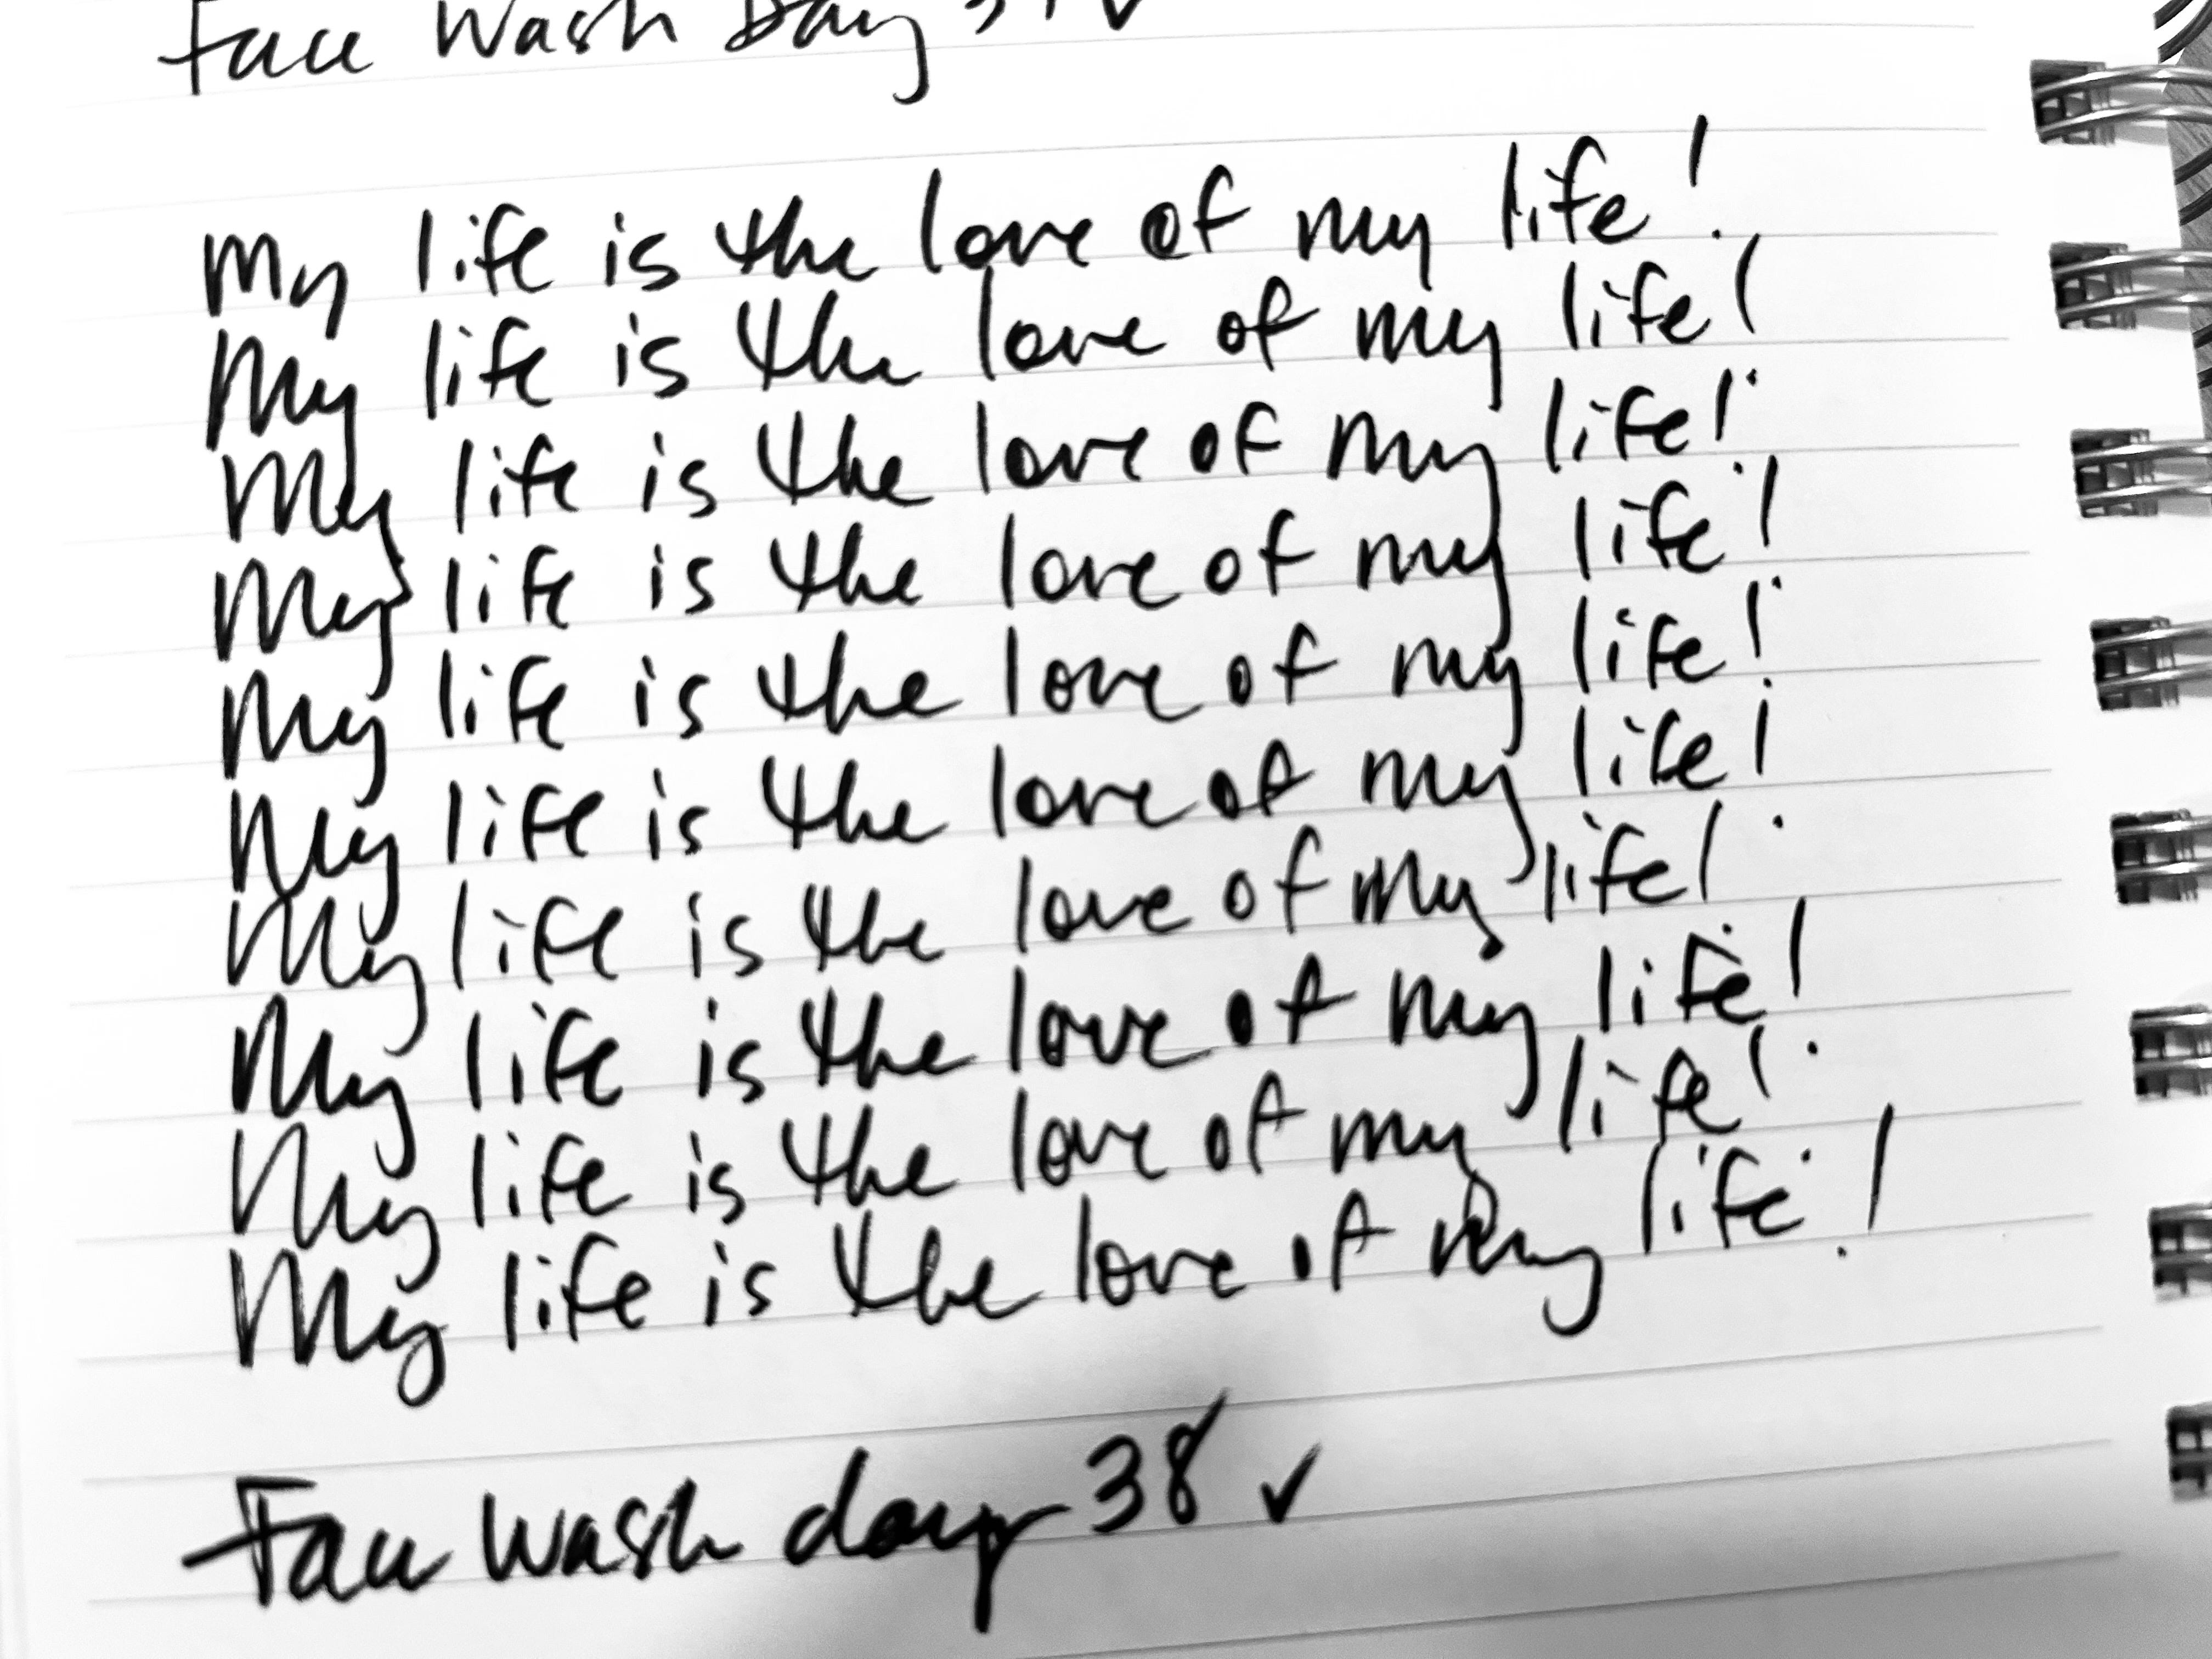 Face Wash Day 37 ✓
My life is the love of my life!
My life is the love of my life!
My life is the love of my life!
My life is the love of my life!
My life is the love of my life!
My life is the love of my life!
My life is the love of my life!
My life is the love of my life!
My life is the love of my life!
My life is the love of my life!
Face wash day 38 ✓